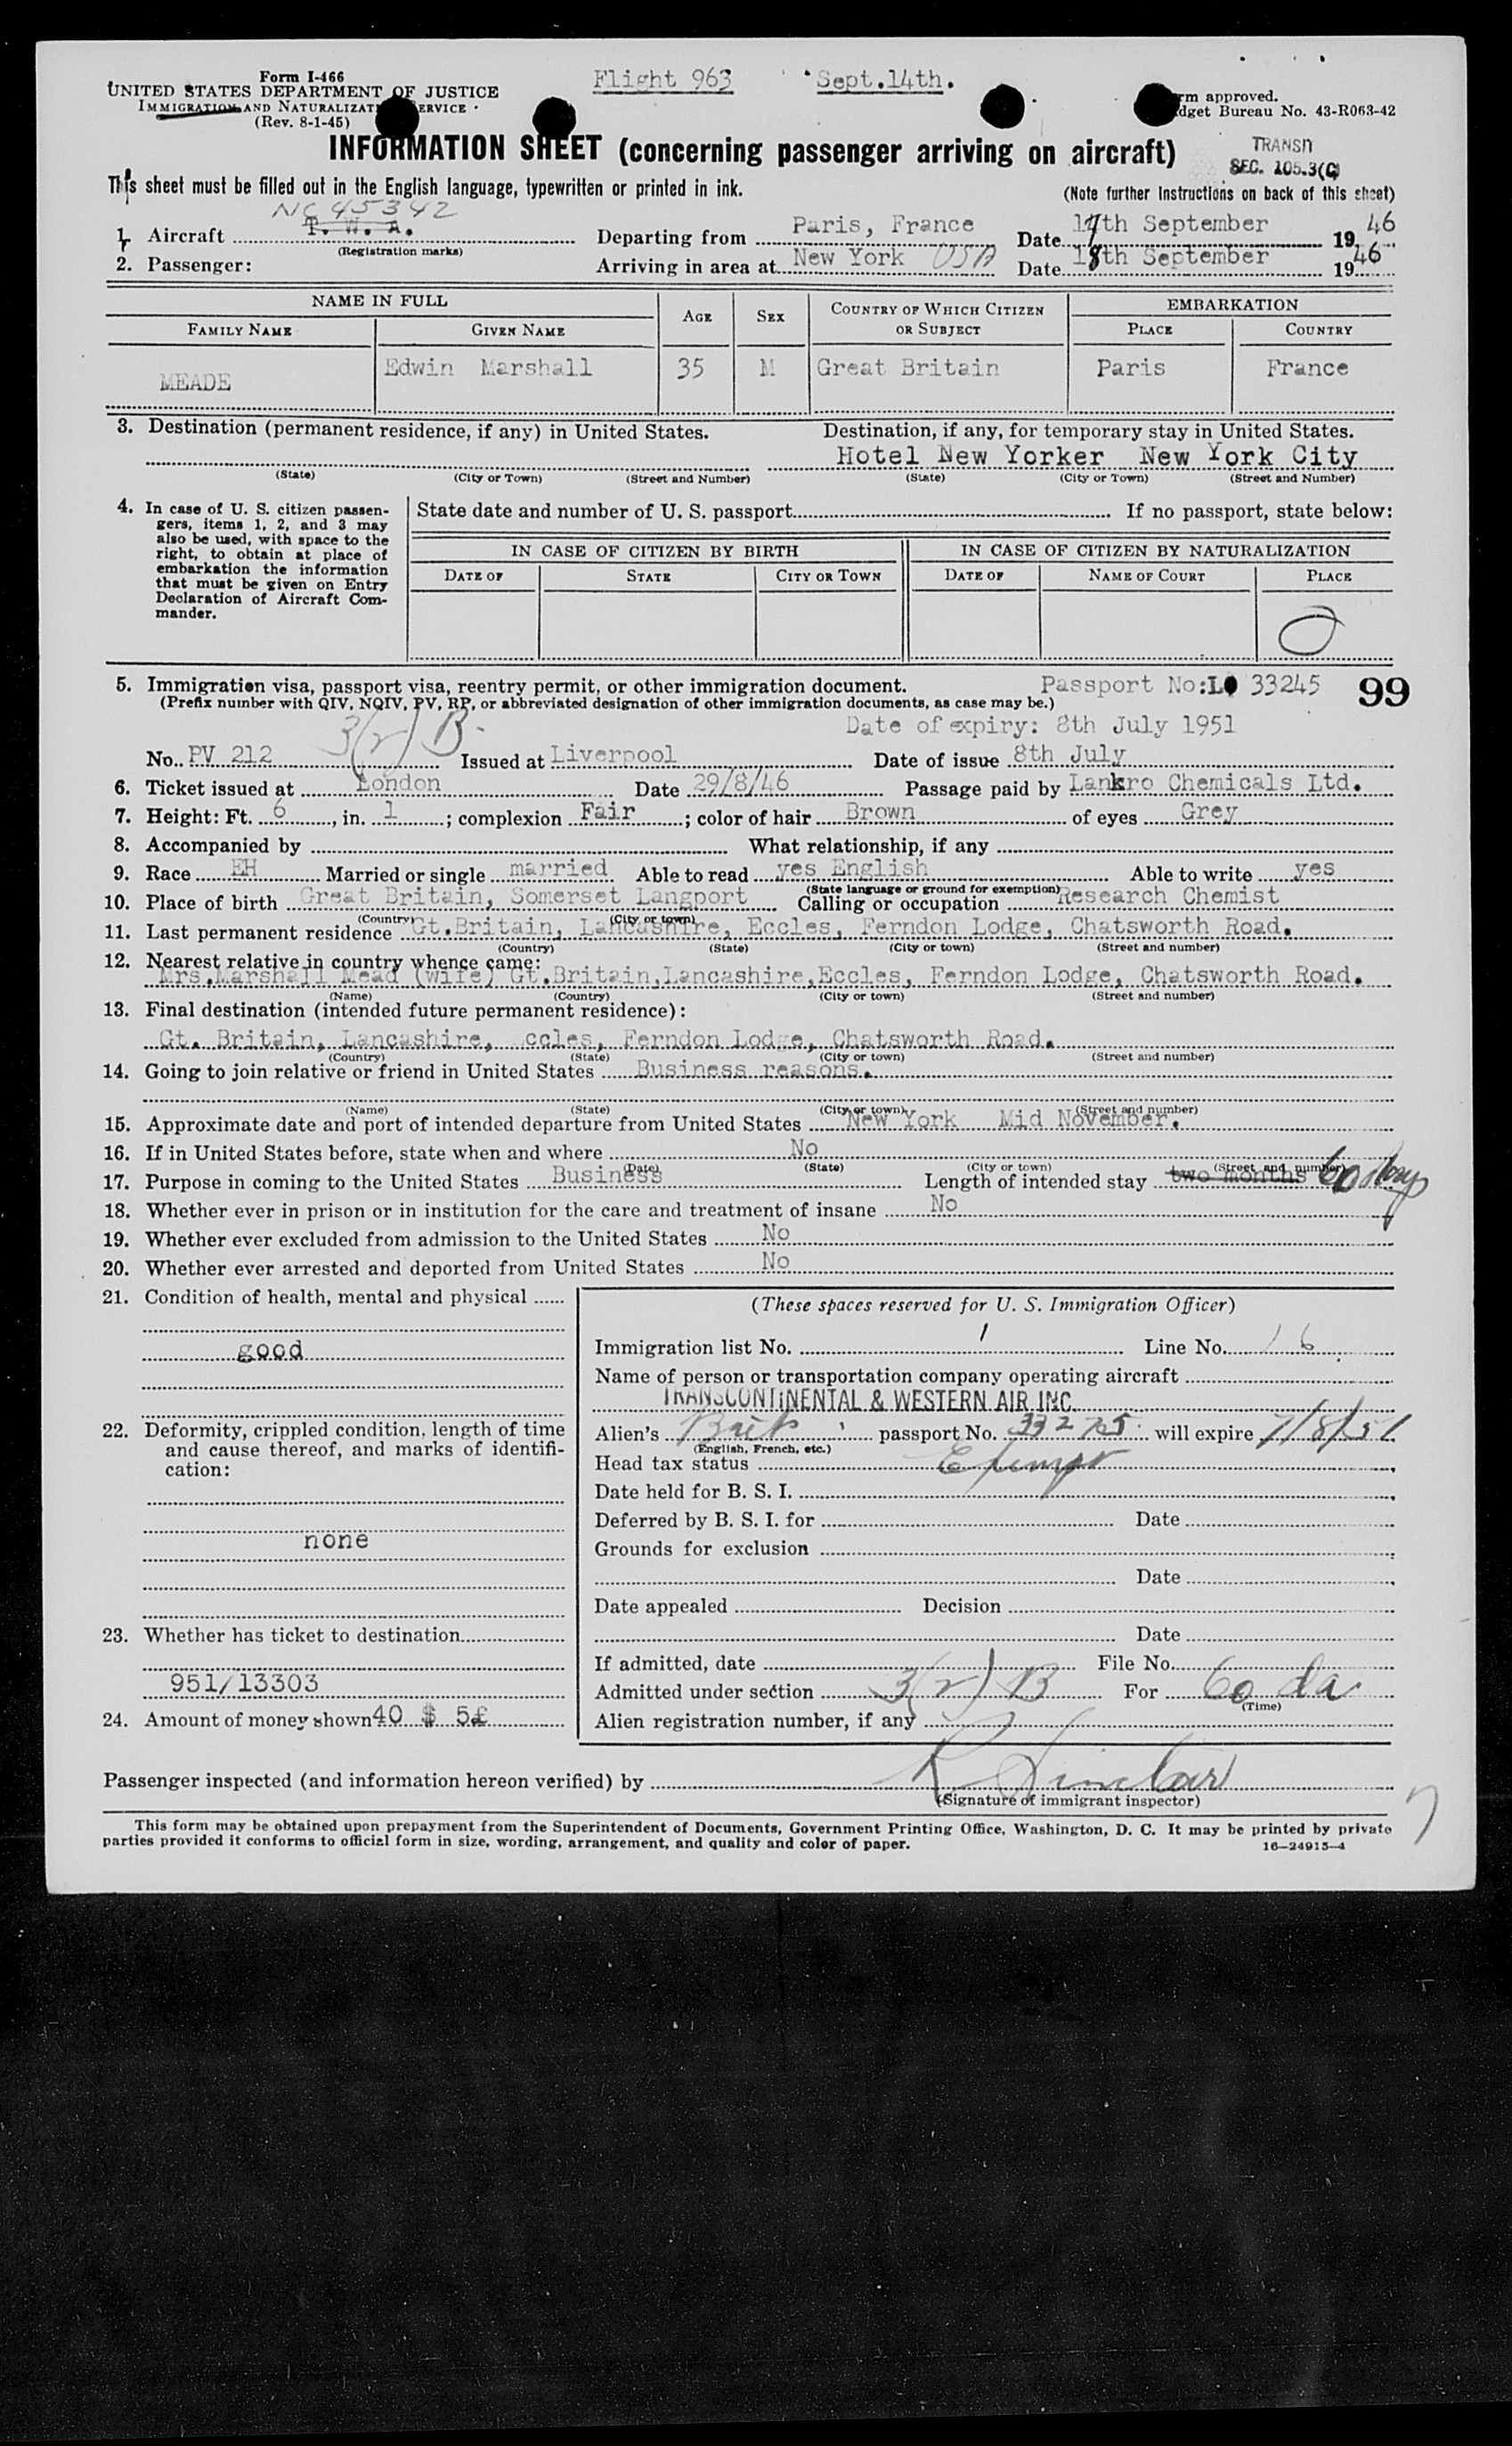 Form I-466
UNITED STATES DEPARTMENT OF JUSTICE
IMMIGRATION AND NATURALIZATI ERVICE
(Rev. 8-1-45)
Flight 963 Sept.14th.
rm approved.
dget Bureau No. 43-R063-42
INFORMATION SHEET (concerning passenger arriving on aircraft)
TRANSIT
SEC. 105.3(C)
This sheet must be filled out in the English language, typewritten or printed in ink.
(Note further instructions on back of this sheet)
NC 45342
1. Aircraft T. W. A. Departing from Paris, France Date 17th September 1946
(Registration marks)
2. Passenger: Arriving in area at New York USA Date 18th September 1946
NAME IN FULL AGE SEX COUNTRY OF WHICH CITIZEN OR SUBJECT EMBARKATION
FAMILY NAME GIVEN NAME PLACE COUNTRY
MEADE Edwin Marshall 35 M Great Britain Paris France
3. Destination (permanent residence, if any) in United States. Destination, if any, for temporary stay in United States.
Hotel New Yorker New York City
(State) (City or Town) (Street and Number) (State) (City or Town) (Street and Number)
4. In case of U. S. citizen passen-
gers, items 1, 2, and 3 may
also be used, with space to the
right, to obtain at place of
embarkation the information
that must be given on Entry
Declaration of Aircraft Com-
mander.
State date and number of U. S. passport If no passport, state below:
IN CASE OF CITIZEN BY BIRTH IN CASE OF CITIZEN BY NATURALIZATION
DATE OF STATE CITY OR TOWN DATE OF NAME OF COURT PLACE
5. Immigration visa, passport visa, reentry permit, or other immigration document. Passport No:LO 33245 99
(Prefix number with QIV, NQIV, PV, RP, or abbreviated designation of other immigration documents, as case may be.)
3(2) B Date of expiry: 8th July 1951
No. PV 212 Issued at Liverpool Date of issue 8th July
6. Ticket issued at London Date 29/8/46 Passage paid by Lankro Chemicals Ltd.
7. Height: Ft. 6, in. 1; complexion Fair; color of hair Brown of eyes Grey
8. Accompanied by What relationship, if any
9. Race EH Married or single married Able to read yes English Able to write yes
(State language or ground for exemption)
10. Place of birth Great Britain, Somerset Langport Calling or occupation Research Chemist
(Country) (City or town)
11. Last permanent residence Gt.Britain, Lancashire, Eccles, Ferndon Lodge, Chatsworth Road.
(Country) (State) (City or town) (Street and number)
12. Nearest relative in country whence came:
Mrs.Marshall Mead (wife) Gt.Britain,Lancashire,Eccles, Ferndon Lodge, Chatsworth Road.
(Name) (Country) (City or town) (Street and number)
13. Final destination (intended future permanent residence):
Gt. Britain, Lancashire, ccles, Ferndon Lodge, Chatsworth Road.
(Country) (State) (City or town) (Street and number)
14. Going to join relative or friend in United States Business reasons.
(Name) (State) (City or town) (Street and number)
15. Approximate date and port of intended departure from United States New York Mid November.
16. If in United States before, state when and where No
(Date) (State) (City or town) (Street and number)
17. Purpose in coming to the United States Business Length of intended stay two months 60 days
18. Whether ever in prison or in institution for the care and treatment of insane No
19. Whether ever excluded from admission to the United States No
20. Whether ever arrested and deported from United States No
21. Condition of health, mental and physical
good
22. Deformity, crippled condition, length of time
and cause thereof, and marks of identifi-
cation:
none
23. Whether has ticket to destination
951/13303
24. Amount of money shown 40 $ 5£
(These spaces reserved for U. S. Immigration Officer)
Immigration list No. 1 Line No. 16
Name of person or transportation company operating aircraft
TRANSCONTINENTAL & WESTERN AIR INC.
Alien's Brit passport No. 33245 will expire 7/8/51
(English, French, etc.)
Head tax status Exempt
Date held for B. S. I.
Deferred by B. S. I. for Date
Grounds for exclusion
Date
Date appealed Decision
Date
If admitted, date File No.
Admitted under section 3(2) B For 60 da
(Time)
Alien registration number, if any
Passenger inspected (and information hereon verified) by R Sinclair
(Signature of immigrant inspector)
This form may be obtained upon prepayment from the Superintendent of Documents, Government Printing Office, Washington, D. C. It may be printed by private
parties provided it conforms to official form in size, wording, arrangement, and quality and color of paper.
16-24915-4